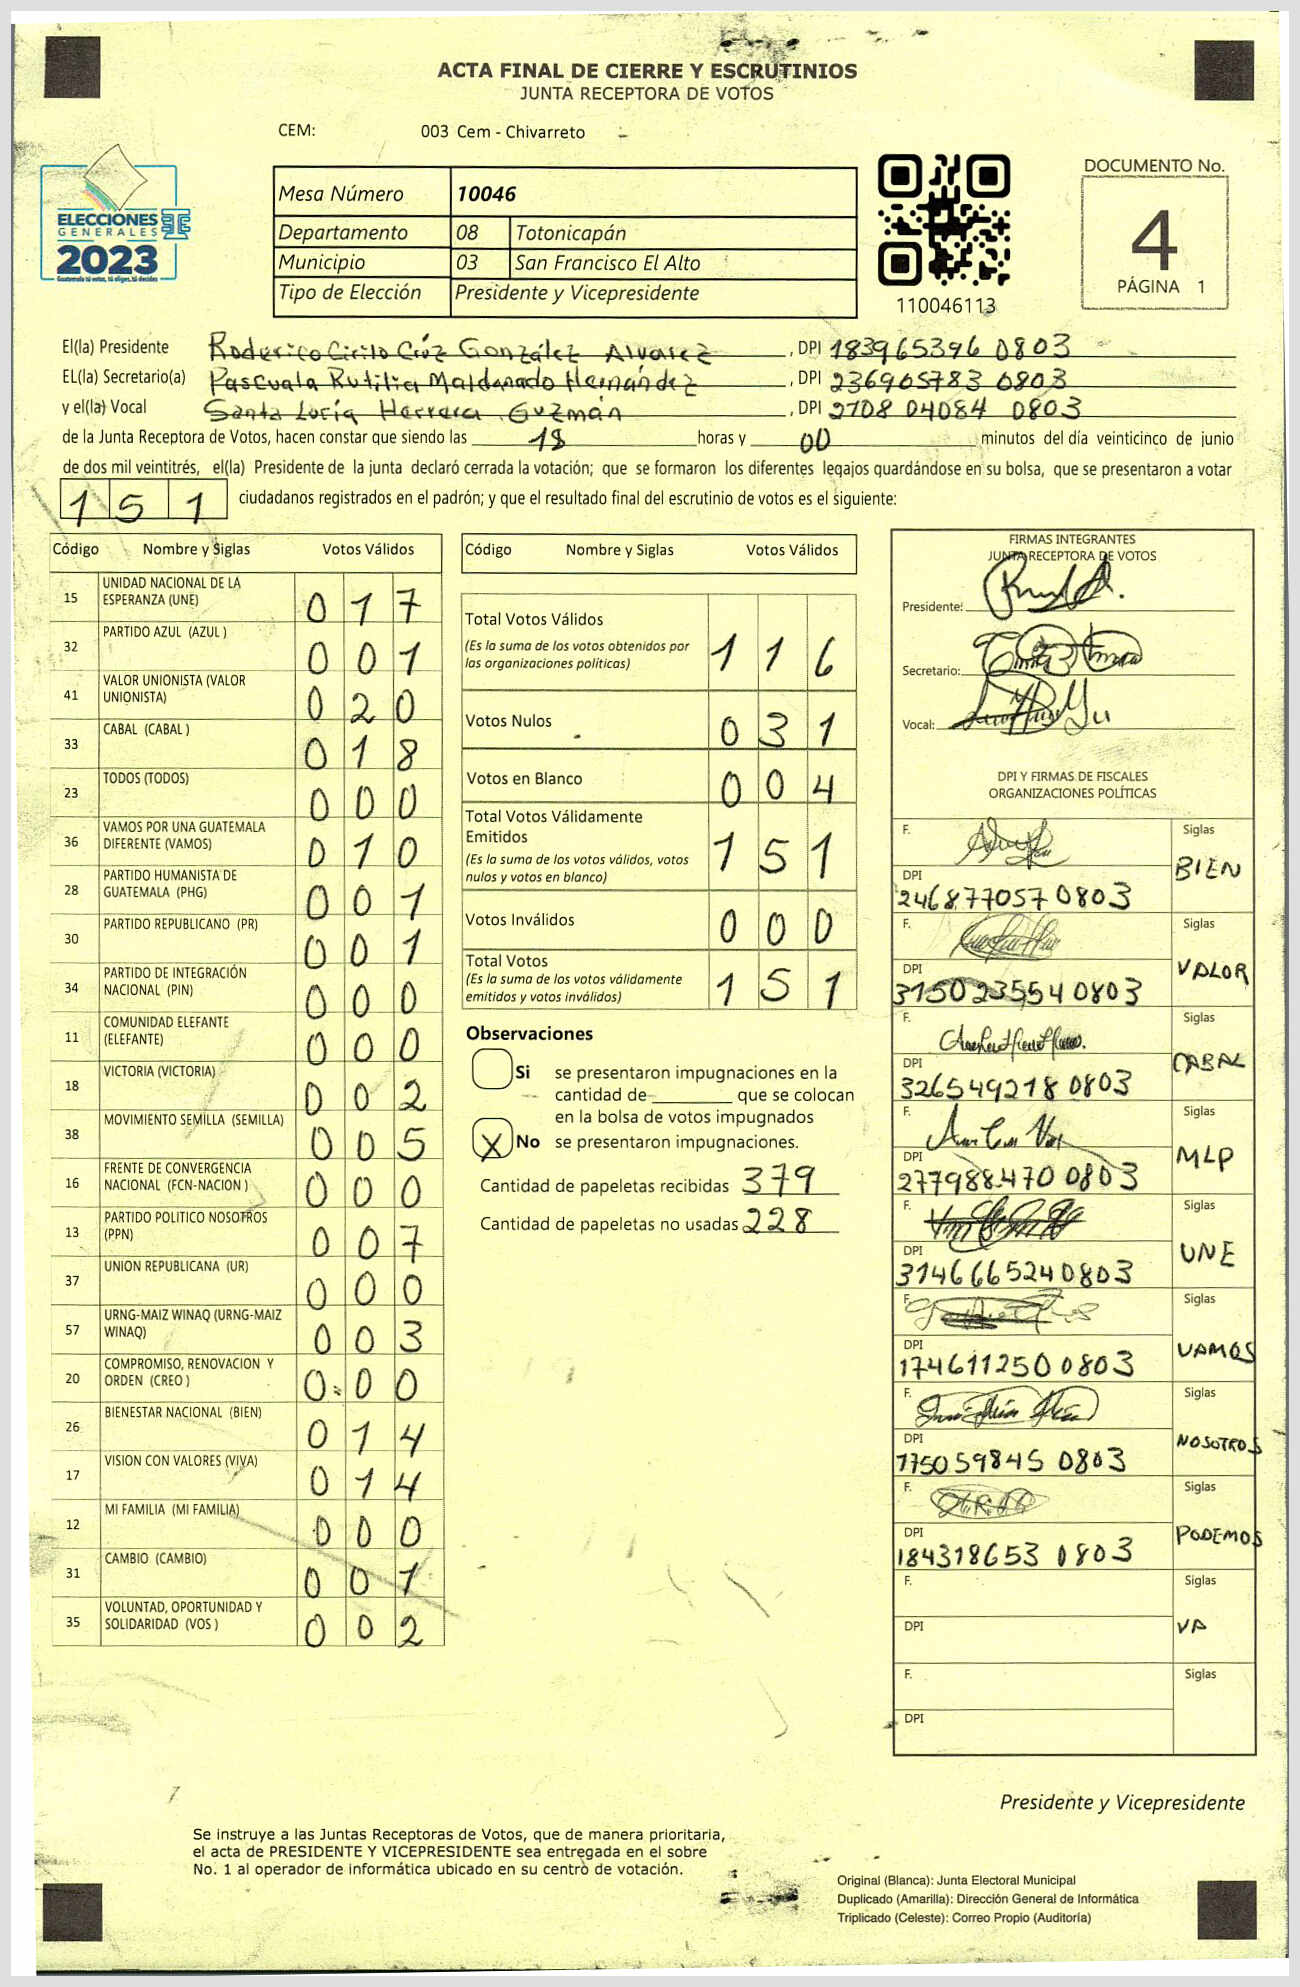 ACTA FINAL DE CIERRE Y ESCRUTINIOS
JUNTA RECEPTORA DE VOTOS
CEM: 003 Cem - Chivarreto
ELECCIONES
GENERALES
2023
Mesa Número 10046
Departamento 08 Totonicapán
Municipio 03 San Francisco El Alto
Tipo de Elección Presidente y Vicepresidente
110046113
DOCUMENTO No.
4
PÁGINA 1
El(la) Presidente Roderico Cirilo Crúz González Alvarez, DPI 183965396 0803
EL(la) Secretario(a) Pascuala Rutilia Maldonado Hernández, DPI 236905783 0803
y el(la) Vocal Santa Lucía Herrera Guzmán, DPI 2708 04084 0803
de la Junta Receptora de Votos, hacen constar que siendo las 18 horas y 00 minutos del día veinticinco de junio
de dos mil veintitrés, el(la) Presidente de la junta declaró cerrada la votación; que se formaron los diferentes legajos guardándose en su bolsa, que se presentaron a votar
151 ciudadanos registrados en el padrón; y que el resultado final del escrutinio de votos es el siguiente:
Código Nombre y Siglas Votos Válidos
15 UNIDAD NACIONAL DE LA ESPERANZA (UNE) 017
32 PARTIDO AZUL (AZUL ) 001
41 VALOR UNIONISTA (VALOR UNIONISTA) 020
33 CABAL (CABAL ) 018
23 TODOS (TODOS) 000
36 VAMOS POR UNA GUATEMALA DIFERENTE (VAMOS) 010
28 PARTIDO HUMANISTA DE GUATEMALA (PHG) 001
30 PARTIDO REPUBLICANO (PR) 001
34 PARTIDO DE INTEGRACIÓN NACIONAL (PIN) 000
11 COMUNIDAD ELEFANTE (ELEFANTE) 000
18 VICTORIA (VICTORIA) 002
38 MOVIMIENTO SEMILLA (SEMILLA) 005
16 FRENTE DE CONVERGENCIA NACIONAL (FCN-NACION ) 000
13 PARTIDO POLITICO NOSOTROS (PPN) 007
37 UNION REPUBLICANA (UR) 000
57 URNG-MAIZ WINAQ (URNG-MAIZ WINAQ) 003
20 COMPROMISO, RENOVACION Y ORDEN (CREO ) 000
26 BIENESTAR NACIONAL (BIEN) 014
17 VISION CON VALORES (VIVA) 014
12 MI FAMILIA (MI FAMILIA) 000
31 CAMBIO (CAMBIO) 001
35 VOLUNTAD, OPORTUNIDAD Y SOLIDARIDAD (VOS ) 002
Código Nombre y Siglas Votos Válidos
Total Votos Válidos 116
(Es la suma de los votos obtenidos por
las organizaciones políticas)
Votos Nulos 031
Votos en Blanco 004
Total Votos Válidamente
Emitidos 151
(Es la suma de los votos válidos, votos
nulos y votos en blanco)
Votos Inválidos 000
Total Votos 151
(Es la suma de los votos válidamente
emitidos y votos inválidos)
Observaciones
Si se presentaron impugnaciones en la
cantidad de ________ que se colocan
en la bolsa de votos impugnados
X No se presentaron impugnaciones.
Cantidad de papeletas recibidas 379
Cantidad de papeletas no usadas 228
FIRMAS INTEGRANTES
JUNTA RECEPTORA DE VOTOS
Presidente:
Secretario:
Vocal:
DPI Y FIRMAS DE FISCALES
ORGANIZACIONES POLÍTICAS
F. Siglas BIEN
DPI 246877057 0803
F. Siglas VALOR
DPI 315023554 0803
F. Siglas CABAL
DPI 326549218 0803
F. Siglas MLP
DPI 277988470 0803
F. Siglas UNE
DPI 314666524 0803
F. Siglas VAMOS
DPI 174611250 0803
F. Siglas NOSOTROS
DPI 175059845 0803
F. Siglas PODEMOS
DPI 184318653 0803
F. Siglas VP
DPI
F. Siglas
DPI
Presidente y Vicepresidente
Se instruye a las Juntas Receptoras de Votos, que de manera prioritaria,
el acta de PRESIDENTE Y VICEPRESIDENTE sea entregada en el sobre
No. 1 al operador de informática ubicado en su centro de votación.
Original (Blanca): Junta Electoral Municipal
Duplicado (Amarilla): Dirección General de Informática
Triplicado (Celeste): Correo Propio (Auditoría)